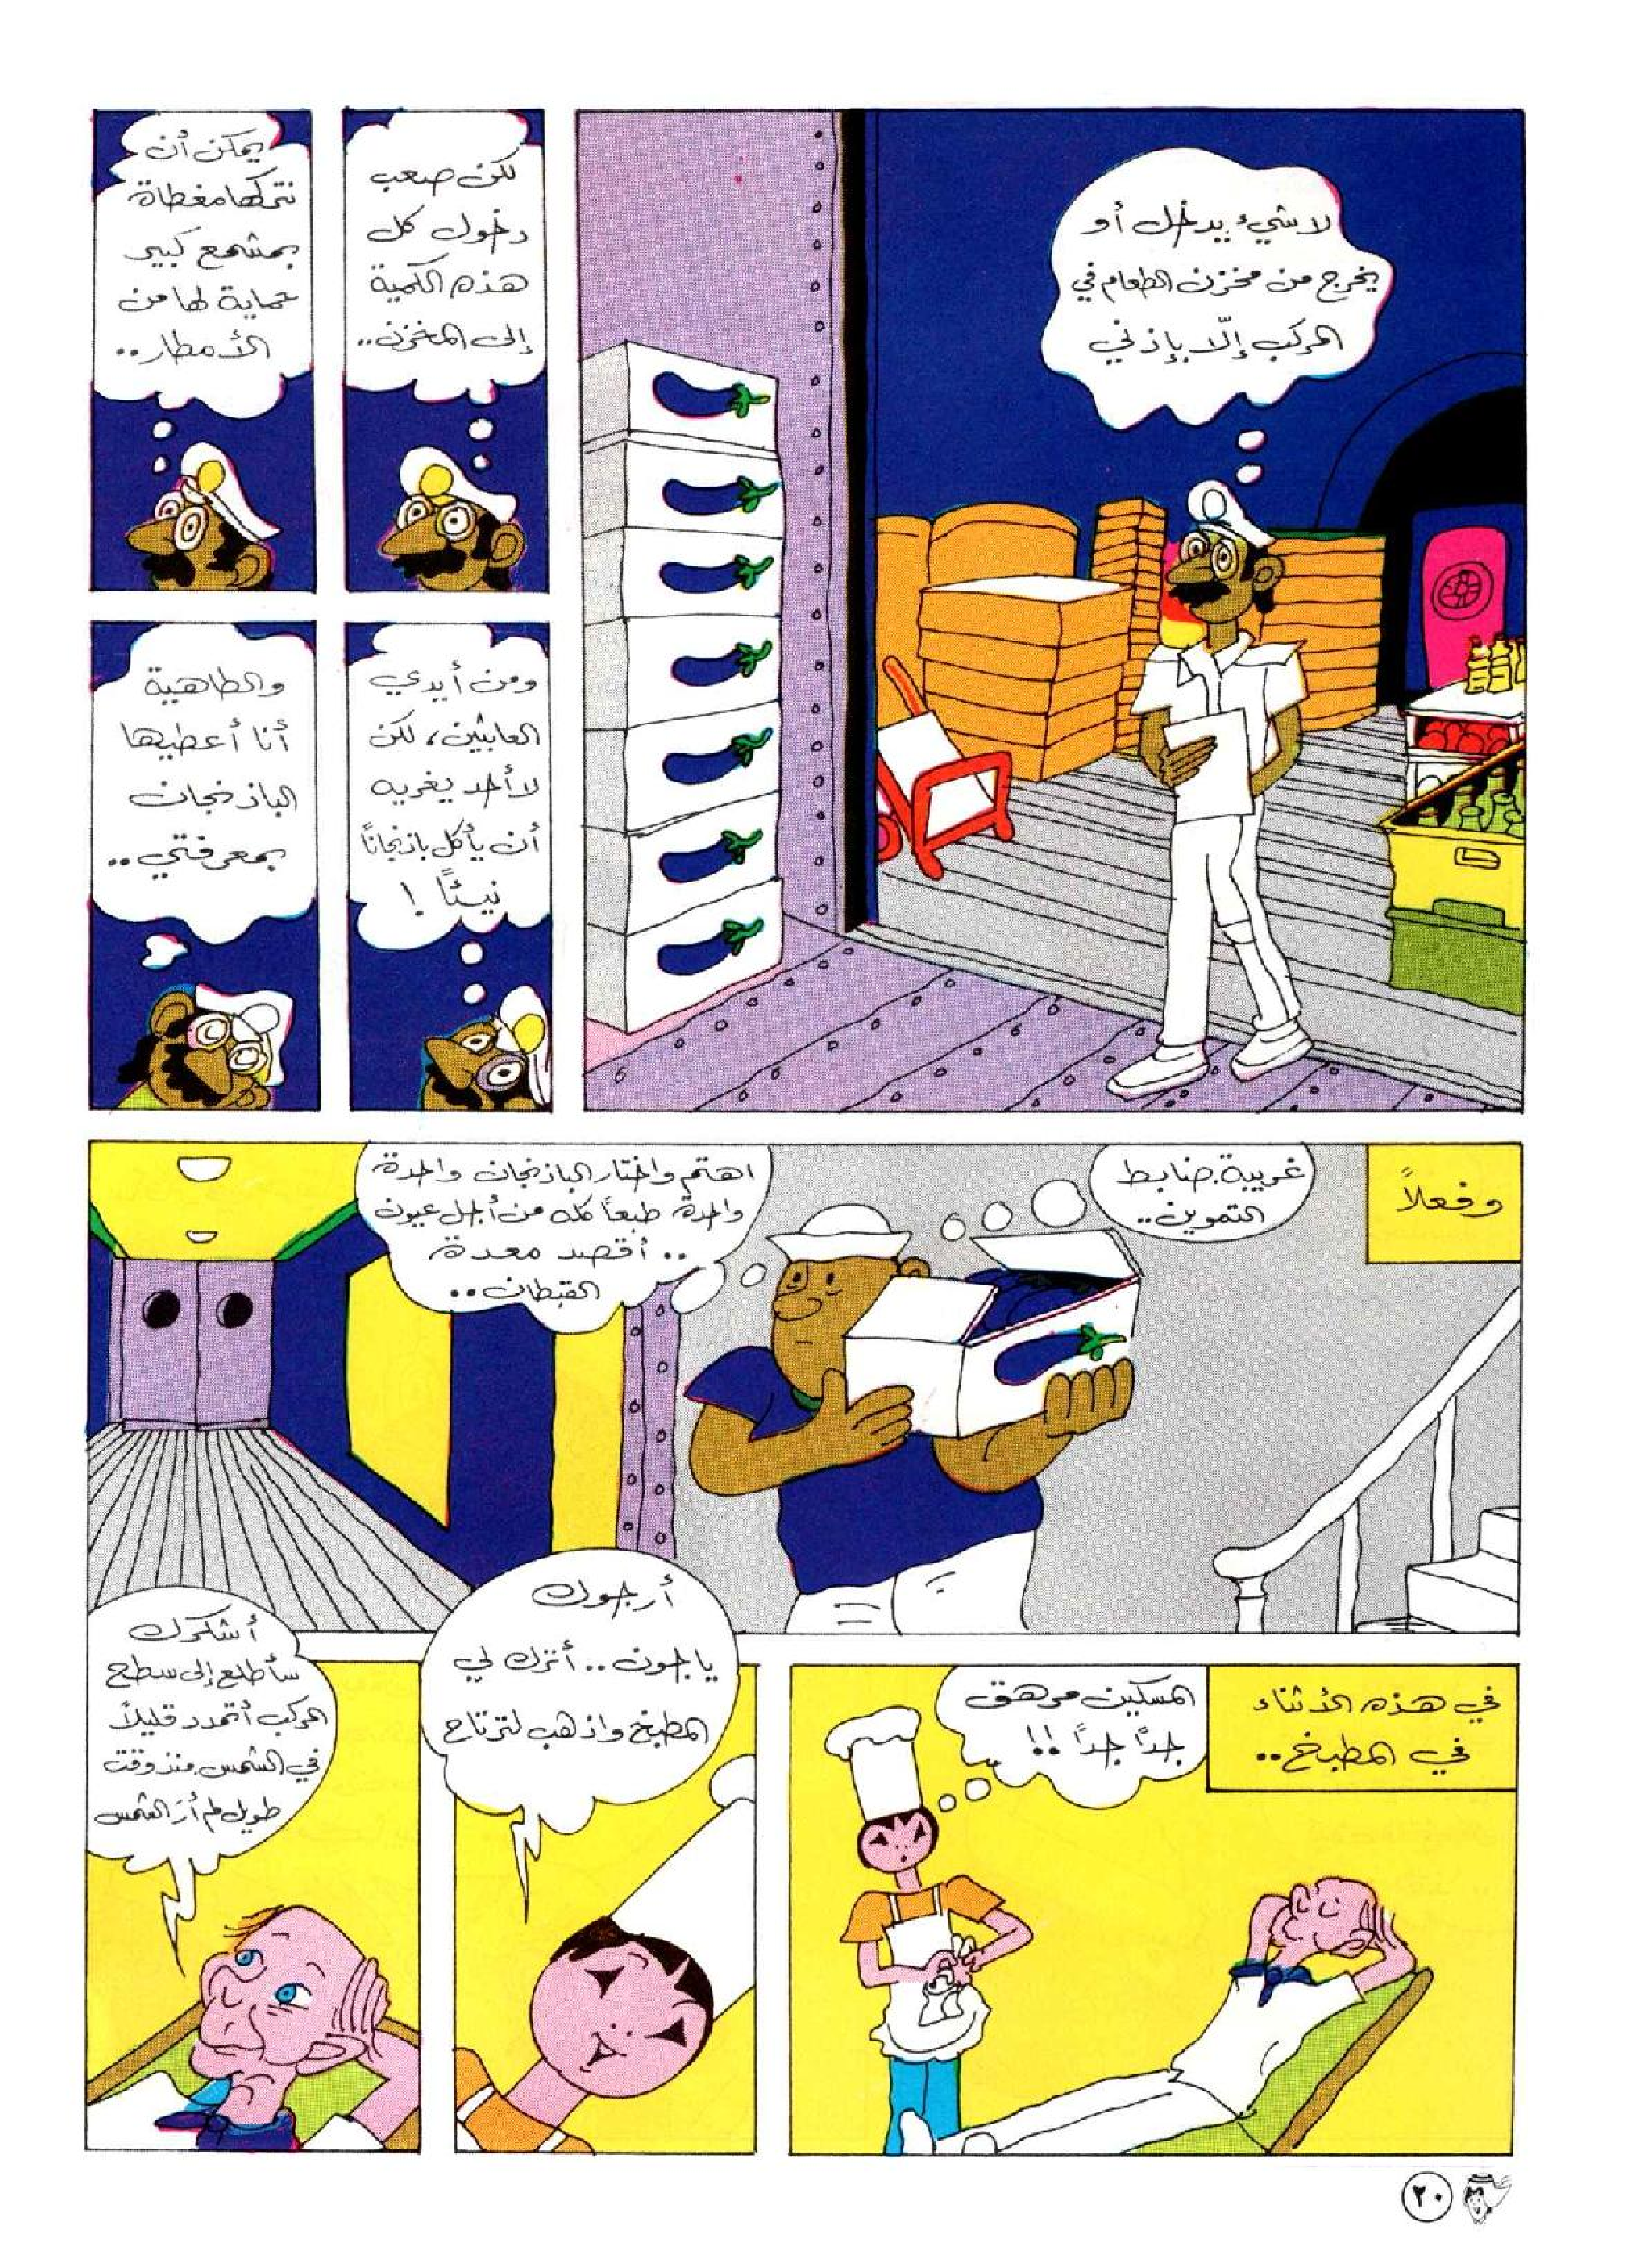 لا شيء يدخل أو
يخرج من مخزن الطعام في
المركب إلّا بإذني
لكن صعب
دخول كل
هذه الكمية
إلى المخزن..
يمكن أن
نتركها مغطاة
بمشمع كبير
حماية لها من
الأمطار..
ومن أيدي
العابثين، لكن
لا أحد يغريه
أن يأكل باذنجاناً
نيئاً !
والطاهية
أنا أعطيها
الباذنجان
بمعرفتي..
وفعلاً
غريبة. ضابط
التموين..
اهتم واختار الباذنجان واحدة
واحدة، طبعاً كله من أجل عيون
.. أقصد معدة
القبطان..
في هذه الأثناء
في المطبخ..
المسكين مرهق
جداً جداً !!
أرجوك
يا جون.. أترك لي
المطبخ واذهب لترتاح
أشكرك
سأطلع إلى سطح
المركب أتمدد قليلاً
في الشمس. منذ وقت
طويل لم أرَ الشمس
٢٠